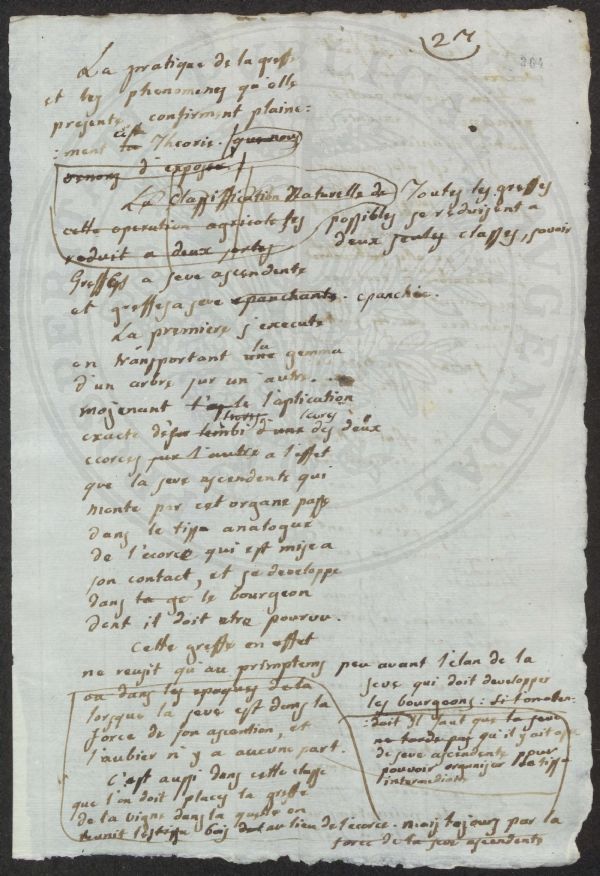 27
304
La pratique de la greffe
et les phenomenes qu'elle
presente, confirment plaine:
:ment cette Theorie. que nous
venons d'exposer.
La Classification Naturelle de
cette operation agricole se
reduit a deux sortes
Toutes les greffes
possibles se reduisent a
deux seules classes, savoir
Greffes a seve ascendente
et greffes a seve epanchante. epanchée.
La premiere s'execute
en transportant la gemma
d'un arbre sur un autre
mojenant l'aplication
exacte des d'une des deux
ecorces sur l'autre a l'effet
que la seve ascendente qui
monte par cet organe passe
dans le tissu analogue
de l'ecorce qui est mise a
son contact, et se developpe
dans le bourgeon
dont il doit etre pourvu.
Cette greffe en effet
ne reusit qu'au primptems
ou dans les epoques de la
lorsque la seve est dans la
force de son ascention, et
l'aubier n'y a aucune part.
C'est aussi dans cette classe
que l'on doit placer la greffe
de la vigne dans la quelle on
reunit les tissu bois au lieu de l'ecorce. mais toujours par la
force de la seve ascendente
peu avant l'élan de la
seve qui doit developer
les bourgeons:
doit Il faut que la seve
ne tarde pas qu'il y ait
de seve ascendente pour
pouvoir organiser le tissu
intermediaire